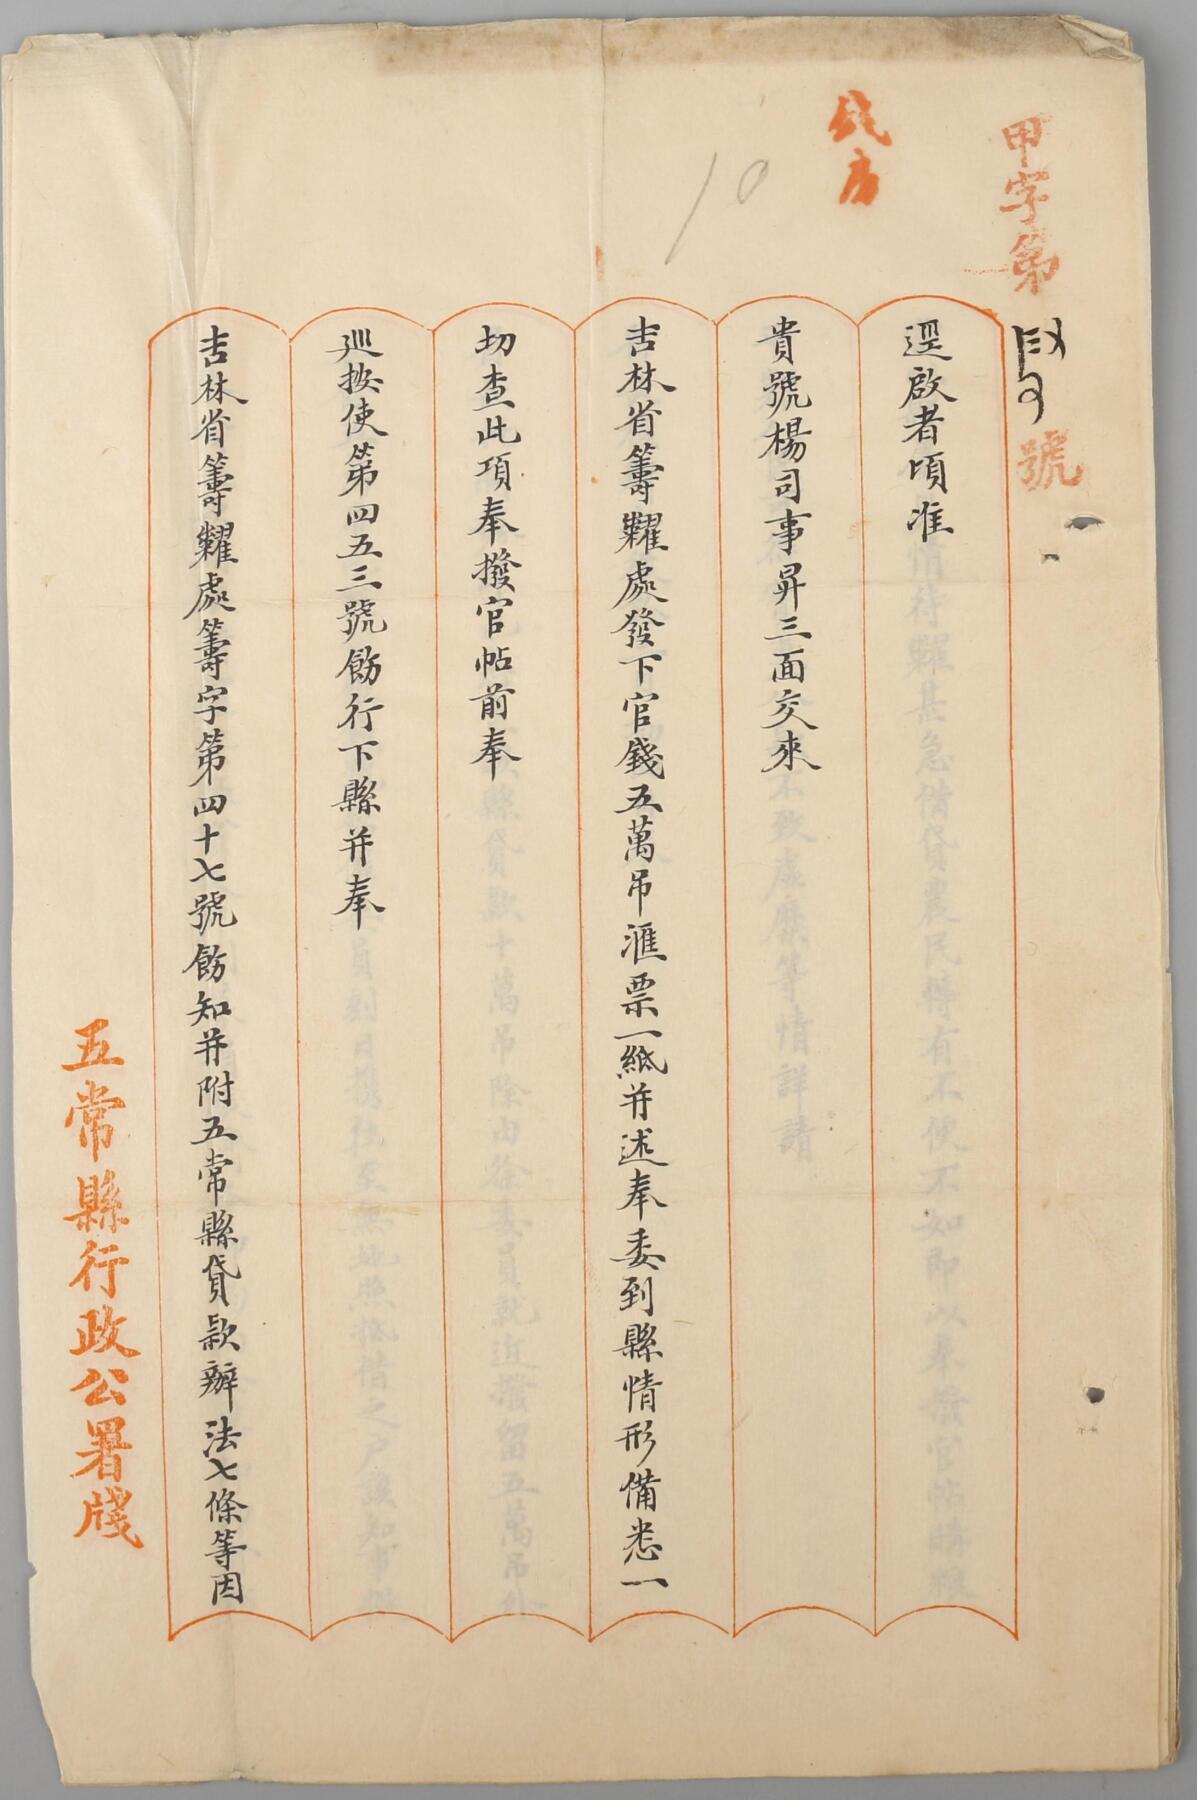 甲字第
號
錢房
10
逕啟者頃准
貴號楊司事昇三面交來
吉林省籌糶處發下官錢五萬吊滙票一紙并述奉委到縣情形備悉一
切查此項奉撥官帖前奉
巡按使第四五三號飭行下縣并奉
吉林省籌糶處籌字第四十七號飭知并附五常縣貸款辦法七條等因
五常縣行政公署牋